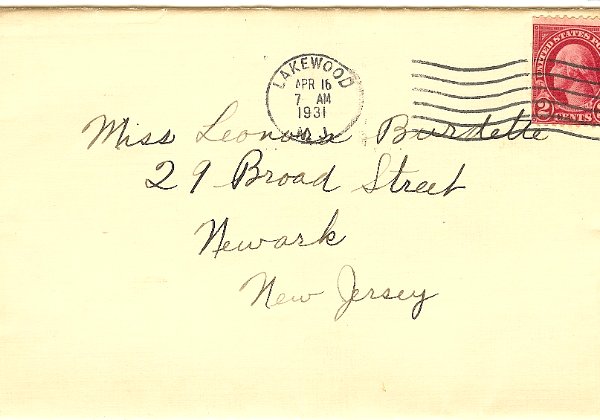 LAKEWOOD
APR 16
7 AM
1931
N.J.
UNITED STATES PO
2 CENTS
Miss Leonora Burdette
29 Broad Street
Newark
New Jersey